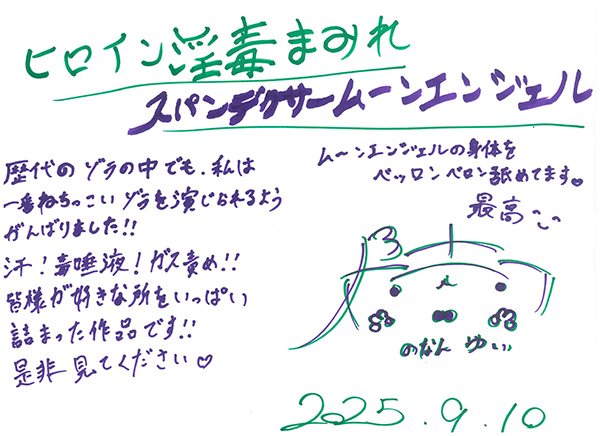 ヒロイン淫毒まみれ
スパンデクサームーンエンジェル
歴代のゾラの中でも、私は
一番ねちっこいゾラを演じられるよう
がんばりました!!
汗!毒唾液!ガス責め!!
皆様が好きな所をいっぱい
詰まった作品です!!
是非見てください♡
ムーンエンジェルの身体を
ペッロンペロン舐めてます♡
最高
のなん ゆい
2025.9.10